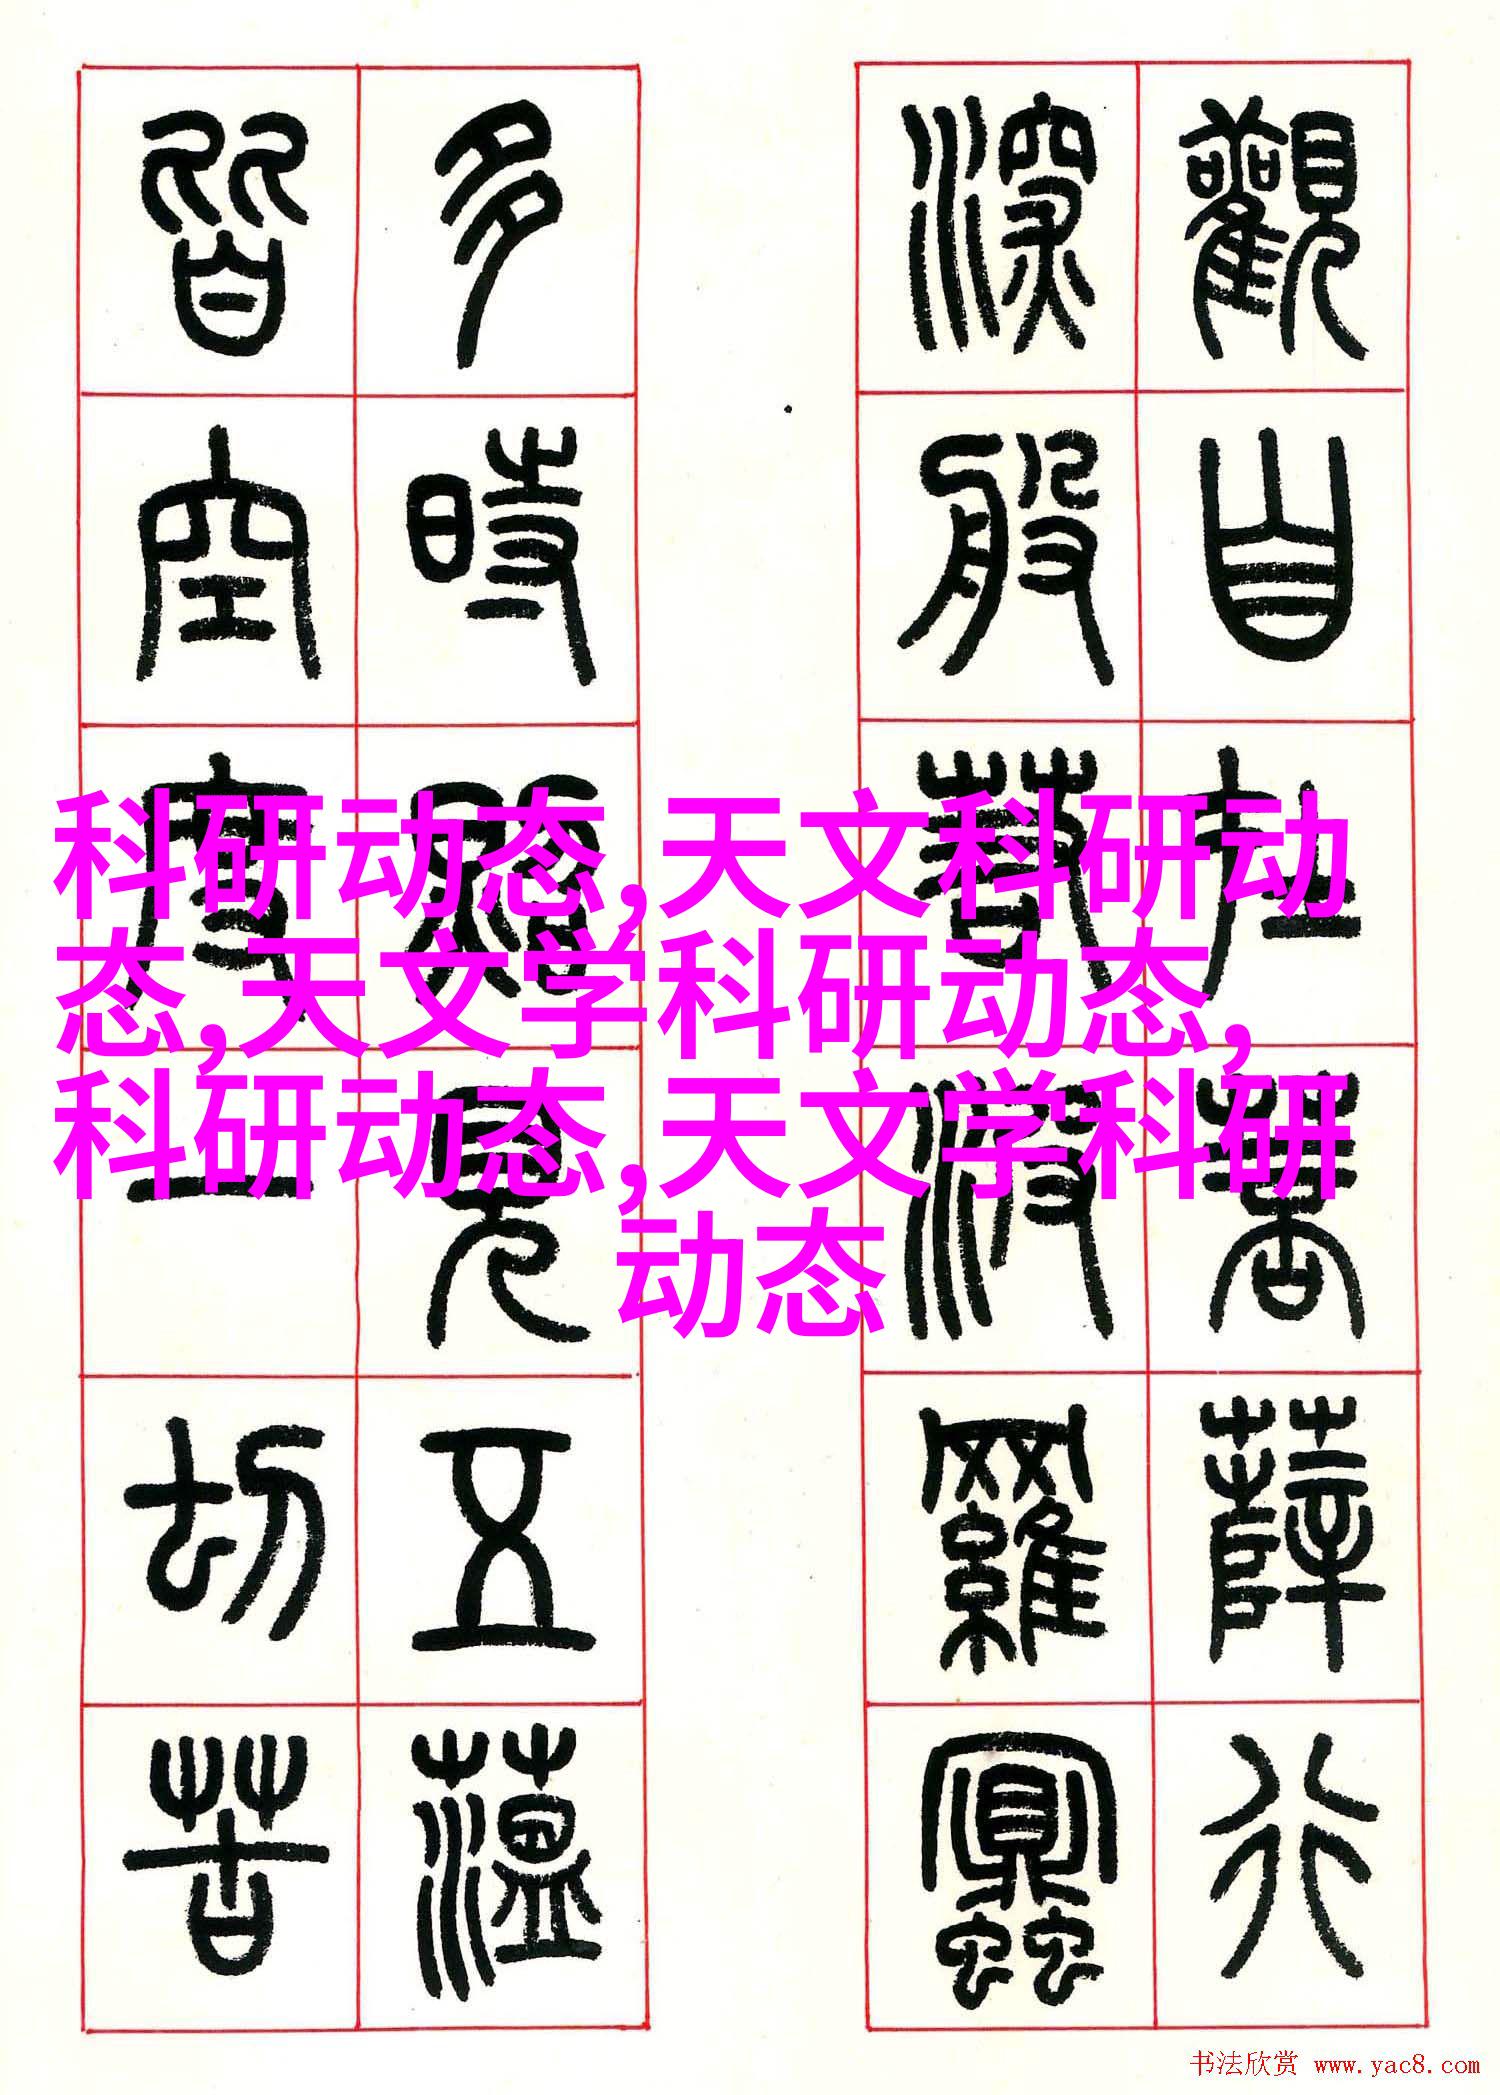 觀自在菩薩行
深般若波羅蜜
多時照見五蘊
皆空度一切苦
科研动态,天文科研动
态,天文学科研动态,
科研动态,天文学科研
动态
书法欣赏 www.yac8.com